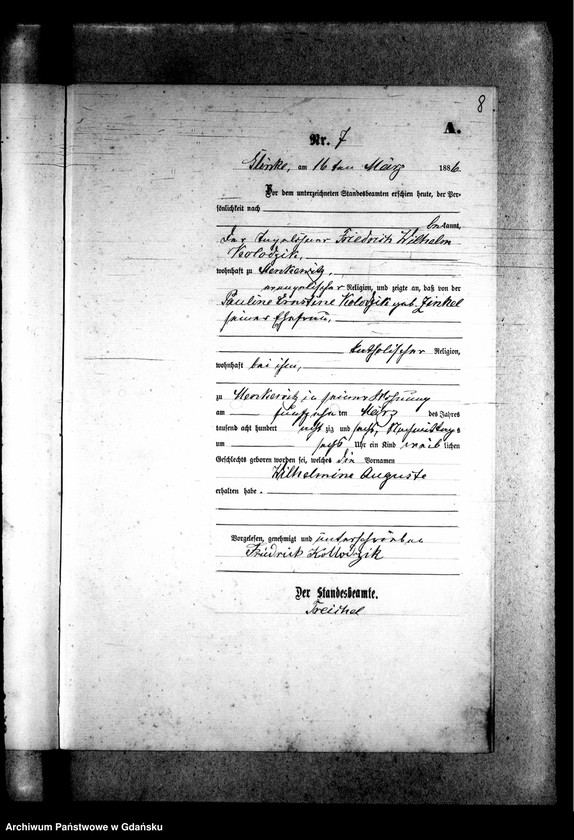 8
A.
Nr. 7
am 16 ten März 1886.
Vor dem unterzeichneten Standesbeamten erschien heute, der Per-
sönlichkeit nach
bekannt,
der Friedrich Wilhelm
Kolodzik,
wohnhaft zu
evangelischer Religion, und zeigte an, daß von der
Pauline Ernstine Kolodzik geb. Finkel
seiner Ehefrau,
katholischer Religion,
wohnhaft bei ihm,
zu in seiner Wohnung
am fünfzehn ten März des Jahres
tausend acht hundert acht zig und sechs, Nachmittags
um sechs Uhr ein Kind weib lichen
Geschlechts geboren worden sei, welches die Vornamen
Wilhelmine Auguste
erhalten habe.
Vorgelesen, genehmigt und unterschrieben
Friedrich Kollodzik
Der Standesbeamte.
Treichel
Archiwum Państwowe w Gdańsku